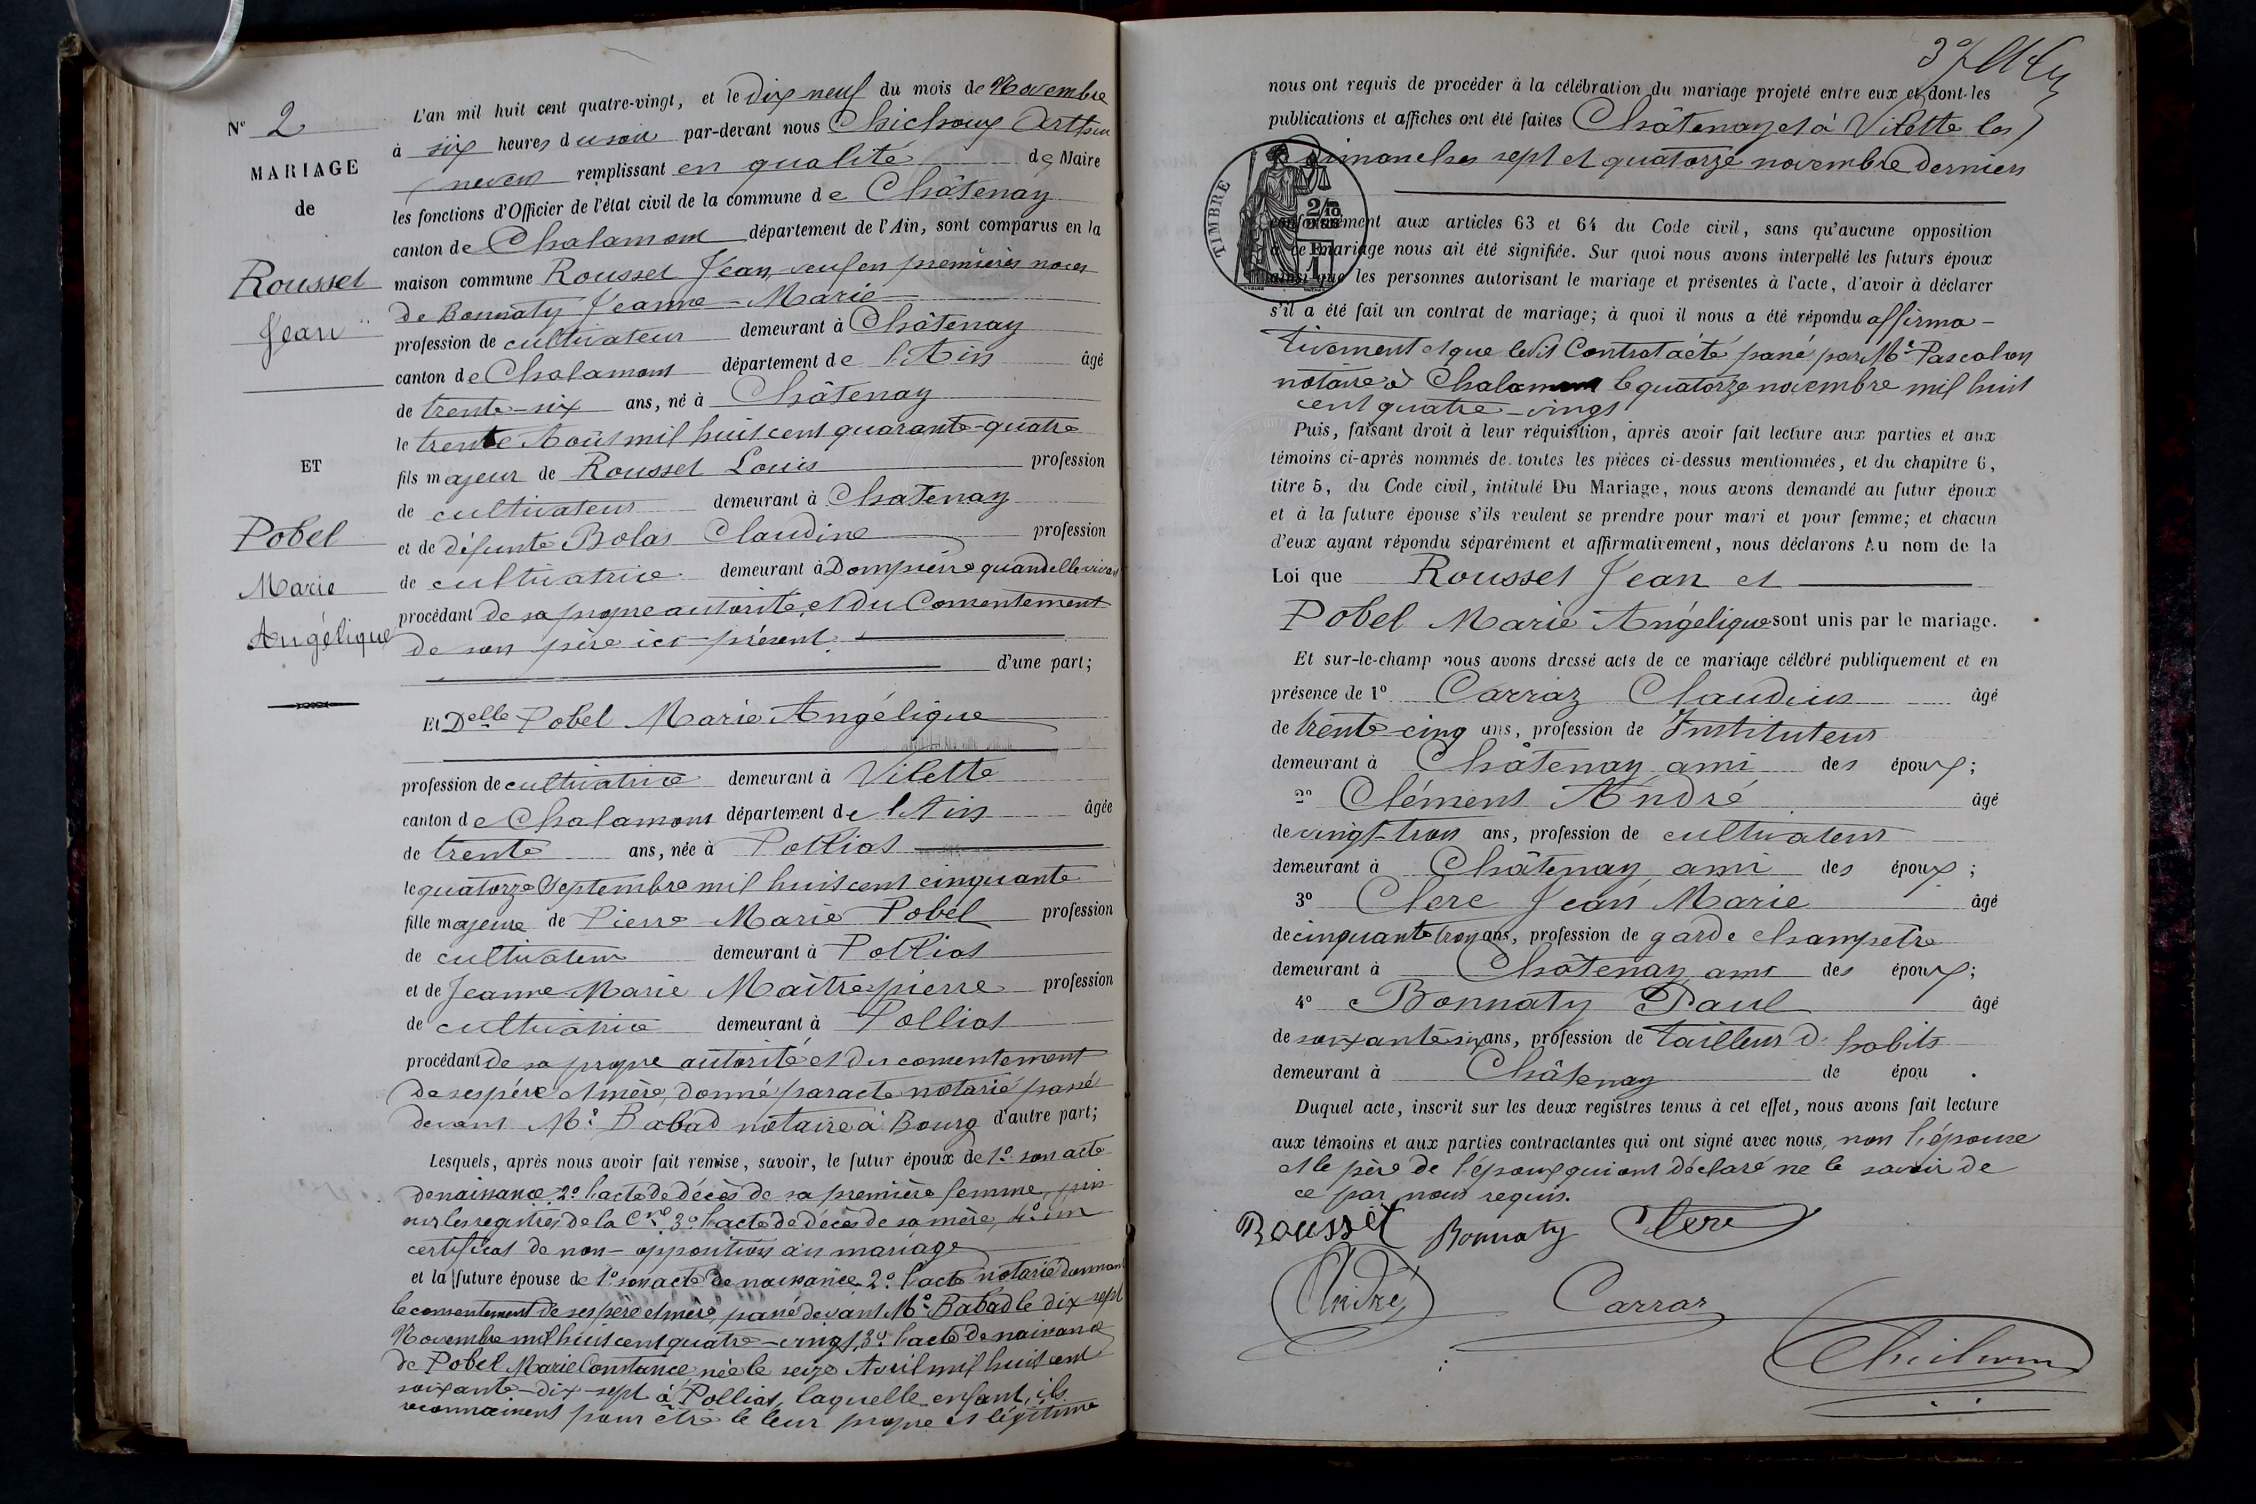 N° 2
MARIAGE
de
Rousset
Jean
ET
Pobel
Marie
Angélique
L'an mil huit cent quatre-vingt, et le dix neuf du mois de Novembre
à six heures du soir par-devant nous Chichoux Arthur
remplissant en qualité de Maire
les fonctions d'Officier de l'état civil de la commune de Châtenay
canton de Chalamont département de l'Ain, sont comparus en la
maison commune Rousset Jean, veuf en premières noces
de Bonnaty Jeanne-Marie
profession de cultivateur demeurant à Châtenay
canton de Chalamont département de l'Ain âgé
de trente-six ans, né à Châtenay
le trente Août mil huit cent quarante-quatre
fils majeur de Rousset Louis profession
de cultivateur demeurant à Chatenay
et de défunte Bolas Claudine profession
de cultivatrice demeurant à Dompierre quand elle vivait
procédant de sa propre autorité et du Consentement
de son père ici présent.
d'une part;
Et Delle Pobel Marie Angélique
profession de cultivatrice demeurant à Vilette
canton de Chalamont département de l'Ain âgée
de trente ans, née à Polliat
le quatorze Septembre mil huit cent cinquante
fille majeure de Pierre Marie Pobel profession
de cultivateur demeurant à Polliat
et de Jeanne Marie Maitrepierre profession
de cultivatrice demeurant à Polliat
procédant de sa propre autorité et du consentement
de ses père et mère, donné par acte notarié passé
devant Me Babad notaire à Bourg d'autre part;
Lesquels, après nous avoir fait remise, savoir, le futur époux de 1° son acte
de naissance 2° l'acte de décès de sa première femme, pris
sur les registres de la Cne 3° l'acte de décès de sa mère, 4° un
certificat de non-opposition au mariage
et la future épouse de 1° son acte de naissance 2° l'acte notarié donnant
le consentement de ses père et mère, passé devant Me Babad le dix sept
Novembre mil huit cent quatre-vingt, 3° l'acte de naissance
de Pobel Marie Constance, née le seize Avril mil huit cent
soixante-dix-sept à Polliat, laquelle enfant, ils
reconnaissent pour être le leur propre et légitime
nous ont requis de procéder à la célébration du mariage projeté entre eux et dont les
publications et affiches ont été faites Châtenay et à Vilette les
dimanches sept et quatorze novembre derniers
TIMBRE
conformément aux articles 63 et 64 du Code civil, sans qu'aucune opposition
à ce mariage nous ait été signifiée. Sur quoi nous avons interpellé les futurs époux
ainsi que les personnes autorisant le mariage et présentes à l'acte, d'avoir à déclarer
s'il a été fait un contrat de mariage; à quoi il nous a été répondu affirma-
tivement et que ledit Contrat a été passé par Me Pascalon
notaire à Chalamont le quatorze novembre mil huit
cent quatre-vingt
Puis, faisant droit à leur réquisition, après avoir fait lecture aux parties et aux
témoins ci-après nommés de toutes les pièces ci-dessus mentionnées, et du chapitre 6,
titre 5, du Code civil, intitulé Du Mariage, nous avons demandé au futur époux
et à la future épouse s'ils veulent se prendre pour mari et pour femme; et chacun
d'eux ayant répondu séparément et affirmativement, nous déclarons Au nom de la
Loi que Rousset Jean et
Pobel Marie Angélique sont unis par le mariage.
Et sur-le-champ nous avons dressé acte de ce mariage célébré publiquement et en
présence de 1° Carraz Claudius âgé
de trente-cinq ans, profession de Instituteur
demeurant à Châtenay ami des époux;
2° Clément André âgé
de vingt-trois ans, profession de cultivateur
demeurant à Châtenay ami des époux;
3° Clerc Jean Marie âgé
de cinquante trois ans, profession de garde champetre
demeurant à Châtenay ami des époux;
4° Bonnaty Paul âgé
de soixante six ans, profession de tailleur d'habits
demeurant à Châtenay de épou .
Duquel acte, inscrit sur les deux registres tenus à cet effet, nous avons fait lecture
aux témoins et aux parties contractantes qui ont signé avec nous, non l'épouse
et le père de l'époux qui ont déclaré ne le savoir de
ce par nous requis.
Rousset Bonnaty Clerc
André Carraz